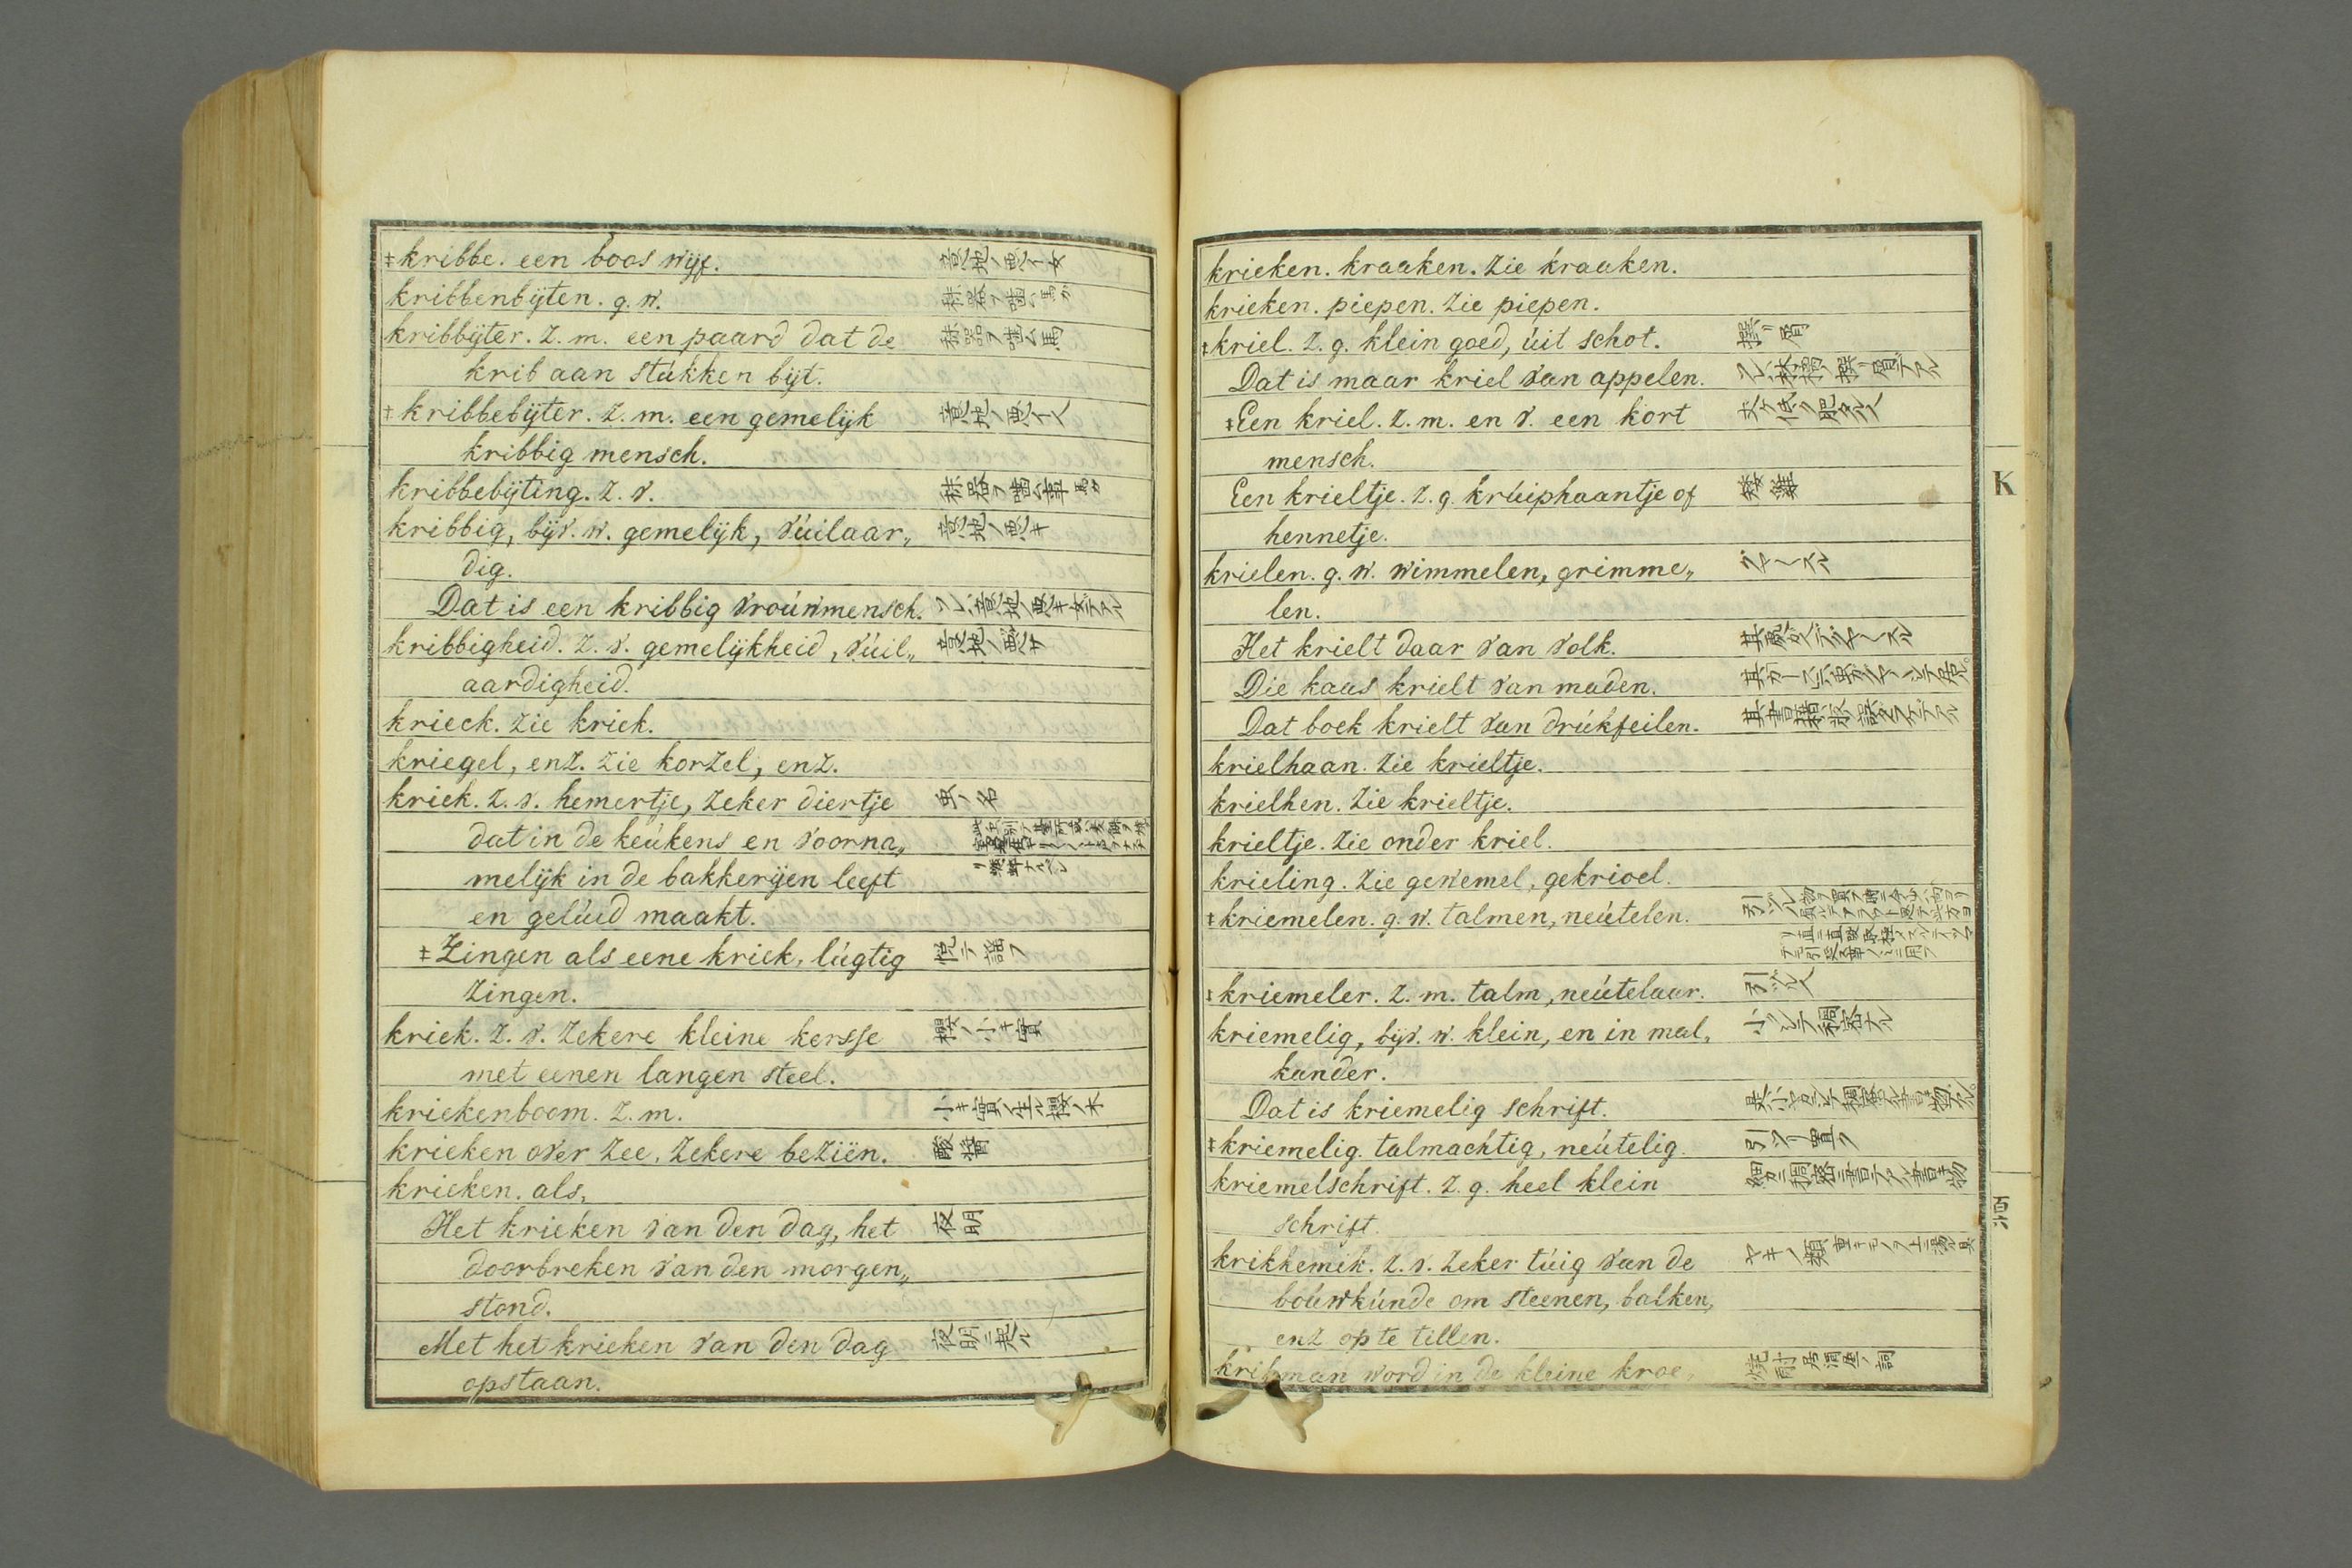 ‡kribbe. een boos wijf. 意地ノ悪イ女
kribbenbijten. g. w. 秣器ヲ噛ム馬ガ
kribbijter. z. m. een paard dat de 秣器ヲ噛ム馬
krib aan stúkken bijt.
‡kribbebijter. z. m. een gemelijk 意地ノ悪イ人
kribbig mensch.
kribbebijting. z. v. 秣器ヲ噛ム事 馬ガ
kribbig, bijv. w. gemelijk, vúilaar„ 意地ノ悪キ
dig.
Dat is een kribbig vroúwmensch. ソレハ意地ノ悪キ女デアル
kribbigheid. z. v. gemelijkheid, vúil„ 意地ノ悪サ
aardigheid.
krieck. zie kriek.
kriegel, enz. zie korzel, enz.
kriek. z. v. hemertje, zeker diertje 虫ノ名
dat in de keúkens en voorna„
melijk in de bakkerijen leeft
en gelúid maakt.
‡Zingen als eene kriek, lúgtig 悦テ謡フ
zingen.
kriek. z. v. zekere kleine kersse 櫻ノ小キ實
met eenen langen steel.
kriekenboom. z. m. 小キ實ノ生ル櫻ノ木
krieken over zee, zekere beziën. 酸醤
krieken. als,
Het krieken van den dag, het 夜明
doorbreken van den morgen„
stond.
Met het krieken van den dag 夜明ニ起ル
opstaan.
krieken. kraaken. zie kraaken.
krieken. piepen. zie piepen.
‡kriel. z. g. klein goed, úit schot. 撰リ屑
Dat is maar kriel van appelen. ソレハ林檎ノ撰リ屑デアル
‡Een kriel. z. m. en v. een kort 丈ケ低ク肥タル人
mensch.
Een krieltje. z. g. krúiphaantje of 矮雞
hennetje.
krielen. g. w. wimmelen, grimme„
len.
Het krielt daar van volk.
Die kaas krielt van maden.
Dat boek krielt van drúkfeilen.
krielhaan. zie krieltje.
krielhen. zie krieltje.
krieltje. zie onder kriel.
krieling. zie gewemel, gekrioel.
‡kriemelen. g. w. talmen, neútelen.
‡kriemeler. z. m. talm, neútelaar. 引ヅル人
kriemelig, bijv. w. klein, en in mal„ 小クシテ稠密ナル
kander.
Dat is kriemelig schrift.
‡kriemelig. talmachtig, neútelig.
kriemelschrift. z. g. heel klein 細カニ稠密ニ書テアル書物
schrift.
krikkemik. z. v. zeker túig van de
boúwkúnde om steenen, balken,
enz op te tillen.
krikman word in de kleine kroe„ 焼酎居酒屋ノ詞
K